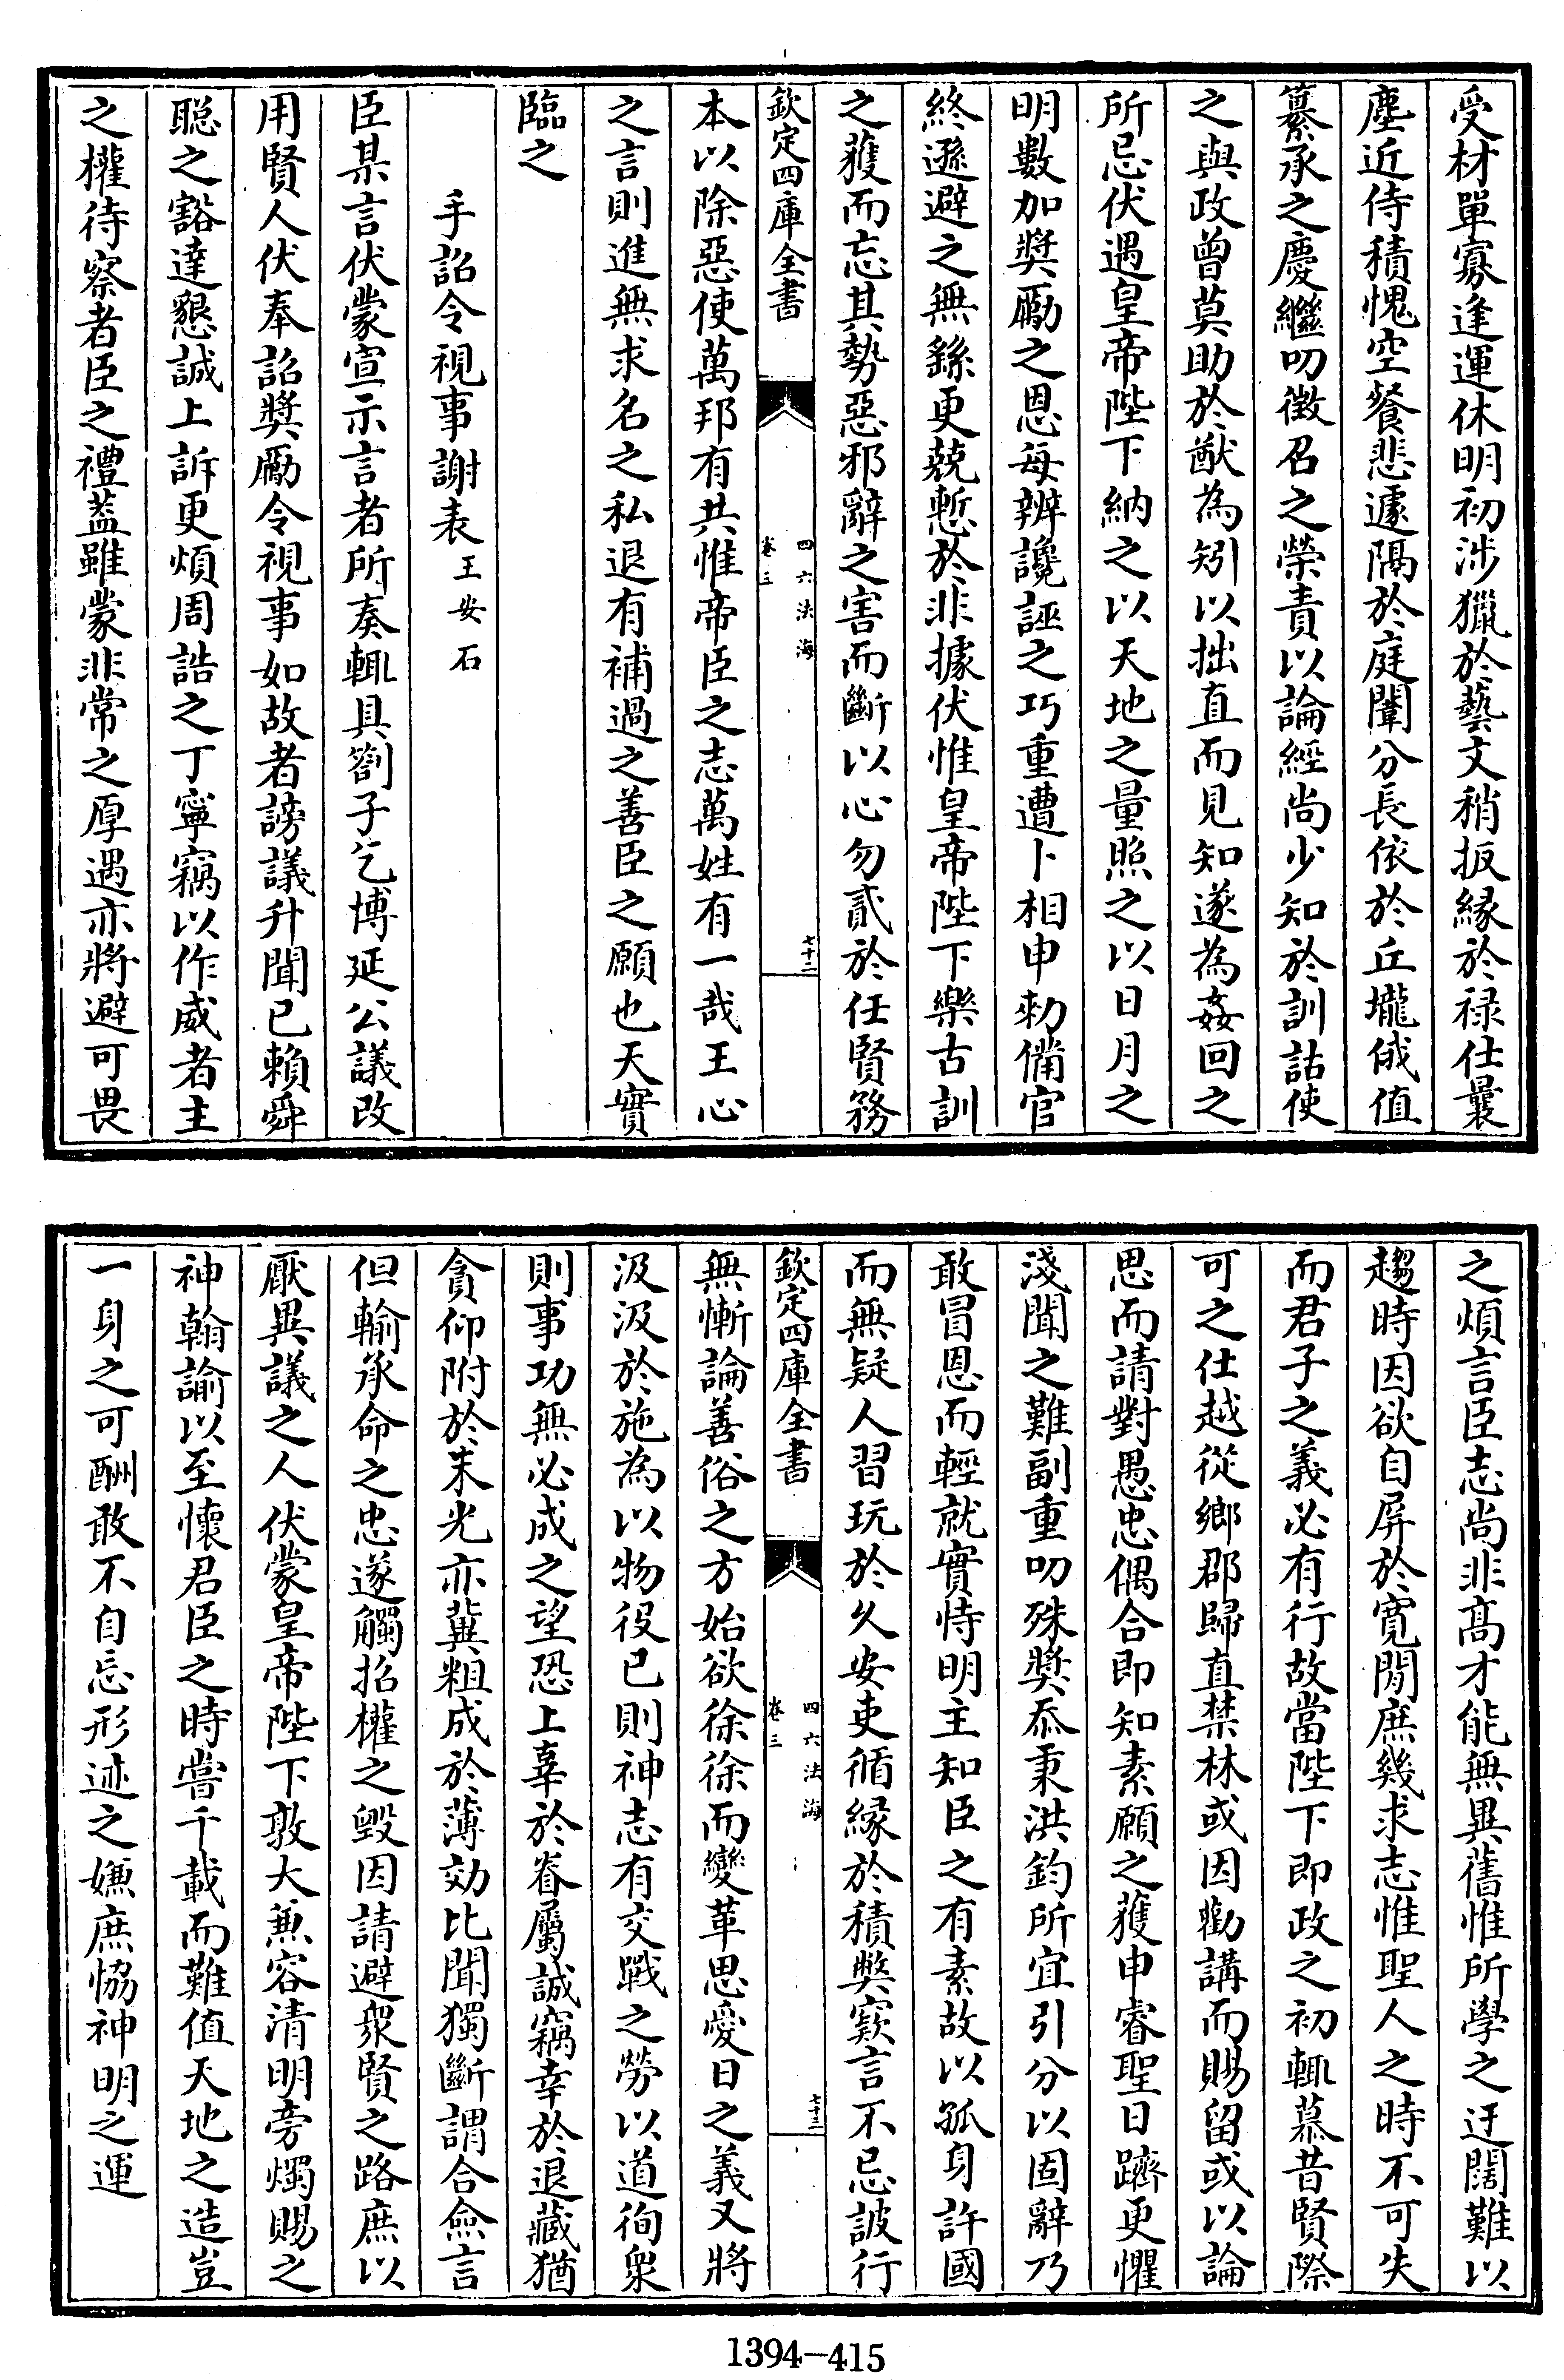 受材單寡逢運休明初涉獵於藝文稍扳緣於禄仕曩
塵近侍積愧空餐悲遽隔於庭闈分長依於丘壠俄值
纂承之慶繼叨徵召之榮責以論經尚少知於訓詁使
之與政曾莫助於猷為矧以拙直而見知遂為姦回之
所忌伏遇皇帝陛下納之以天地之量照之以日月之
明數加奬勵之恩每辨讒誣之巧重遭卜相申勅備官
終遜避之無繇更兢慙於非據伏惟皇帝陛下樂古訓
之獲而忘其勢惡邪辭之害而斷以心勿貳於任賢務
欽定四庫全書
四六法海
卷三
七十二
本以除惡使萬邦有共惟帝臣之志萬姓有一哉王心
之言則進無求名之私退有補過之善臣之願也天實
臨之
手詔令視事謝表王安石
臣某言伏蒙宣示言者所奏輒具劄子乞博延公議改
用賢人伏奉詔奬勵令視事如故者謗議升聞已賴舜
聰之豁達懇誠上訴更煩周誥之丁寧竊以作威者主
之權待察者臣之禮葢雖蒙非常之厚遇亦將避可畏
之煩言臣志尚非髙才能無異舊惟所學之迂闊難以
趨時因欲自屏於寛閒庶幾求志惟聖人之時不可失
而君子之義必有行故當陛下即政之初輒慕昔賢際
可之仕越從鄉郡歸直禁林或因勸講而賜留或以論
思而請對愚忠偶合即知素願之獲申睿聖日躋更懼
淺聞之難副重叨殊奬忝秉洪鈞所宜引分以固辭乃
敢冒恩而輕就實恃明主知臣之有素故以孤身許國
而無疑人習玩於久安吏循緣於積弊窾言不忌詖行
欽定四庫全書
四六法海
卷三
七十三
無慚論善俗之方始欲徐徐而變革思愛日之義又將
汲汲於施為以物役已則神志有交戰之勞以道徇衆
則事功無必成之望恐上辜於眷屬誠竊幸於退藏猶
貪仰附於末光亦冀粗成於薄効比聞獨斷謂合僉言
但輸承命之忠遂觸招權之毀因請避衆賢之路庶以
厭異議之人伏蒙皇帝陛下敦大兼容清明旁燭賜之
神翰諭以至懷君臣之時嘗千載而難值天地之造豈
一身之可酬敢不自忘形迹之嫌庶恊神明之運
1394-415